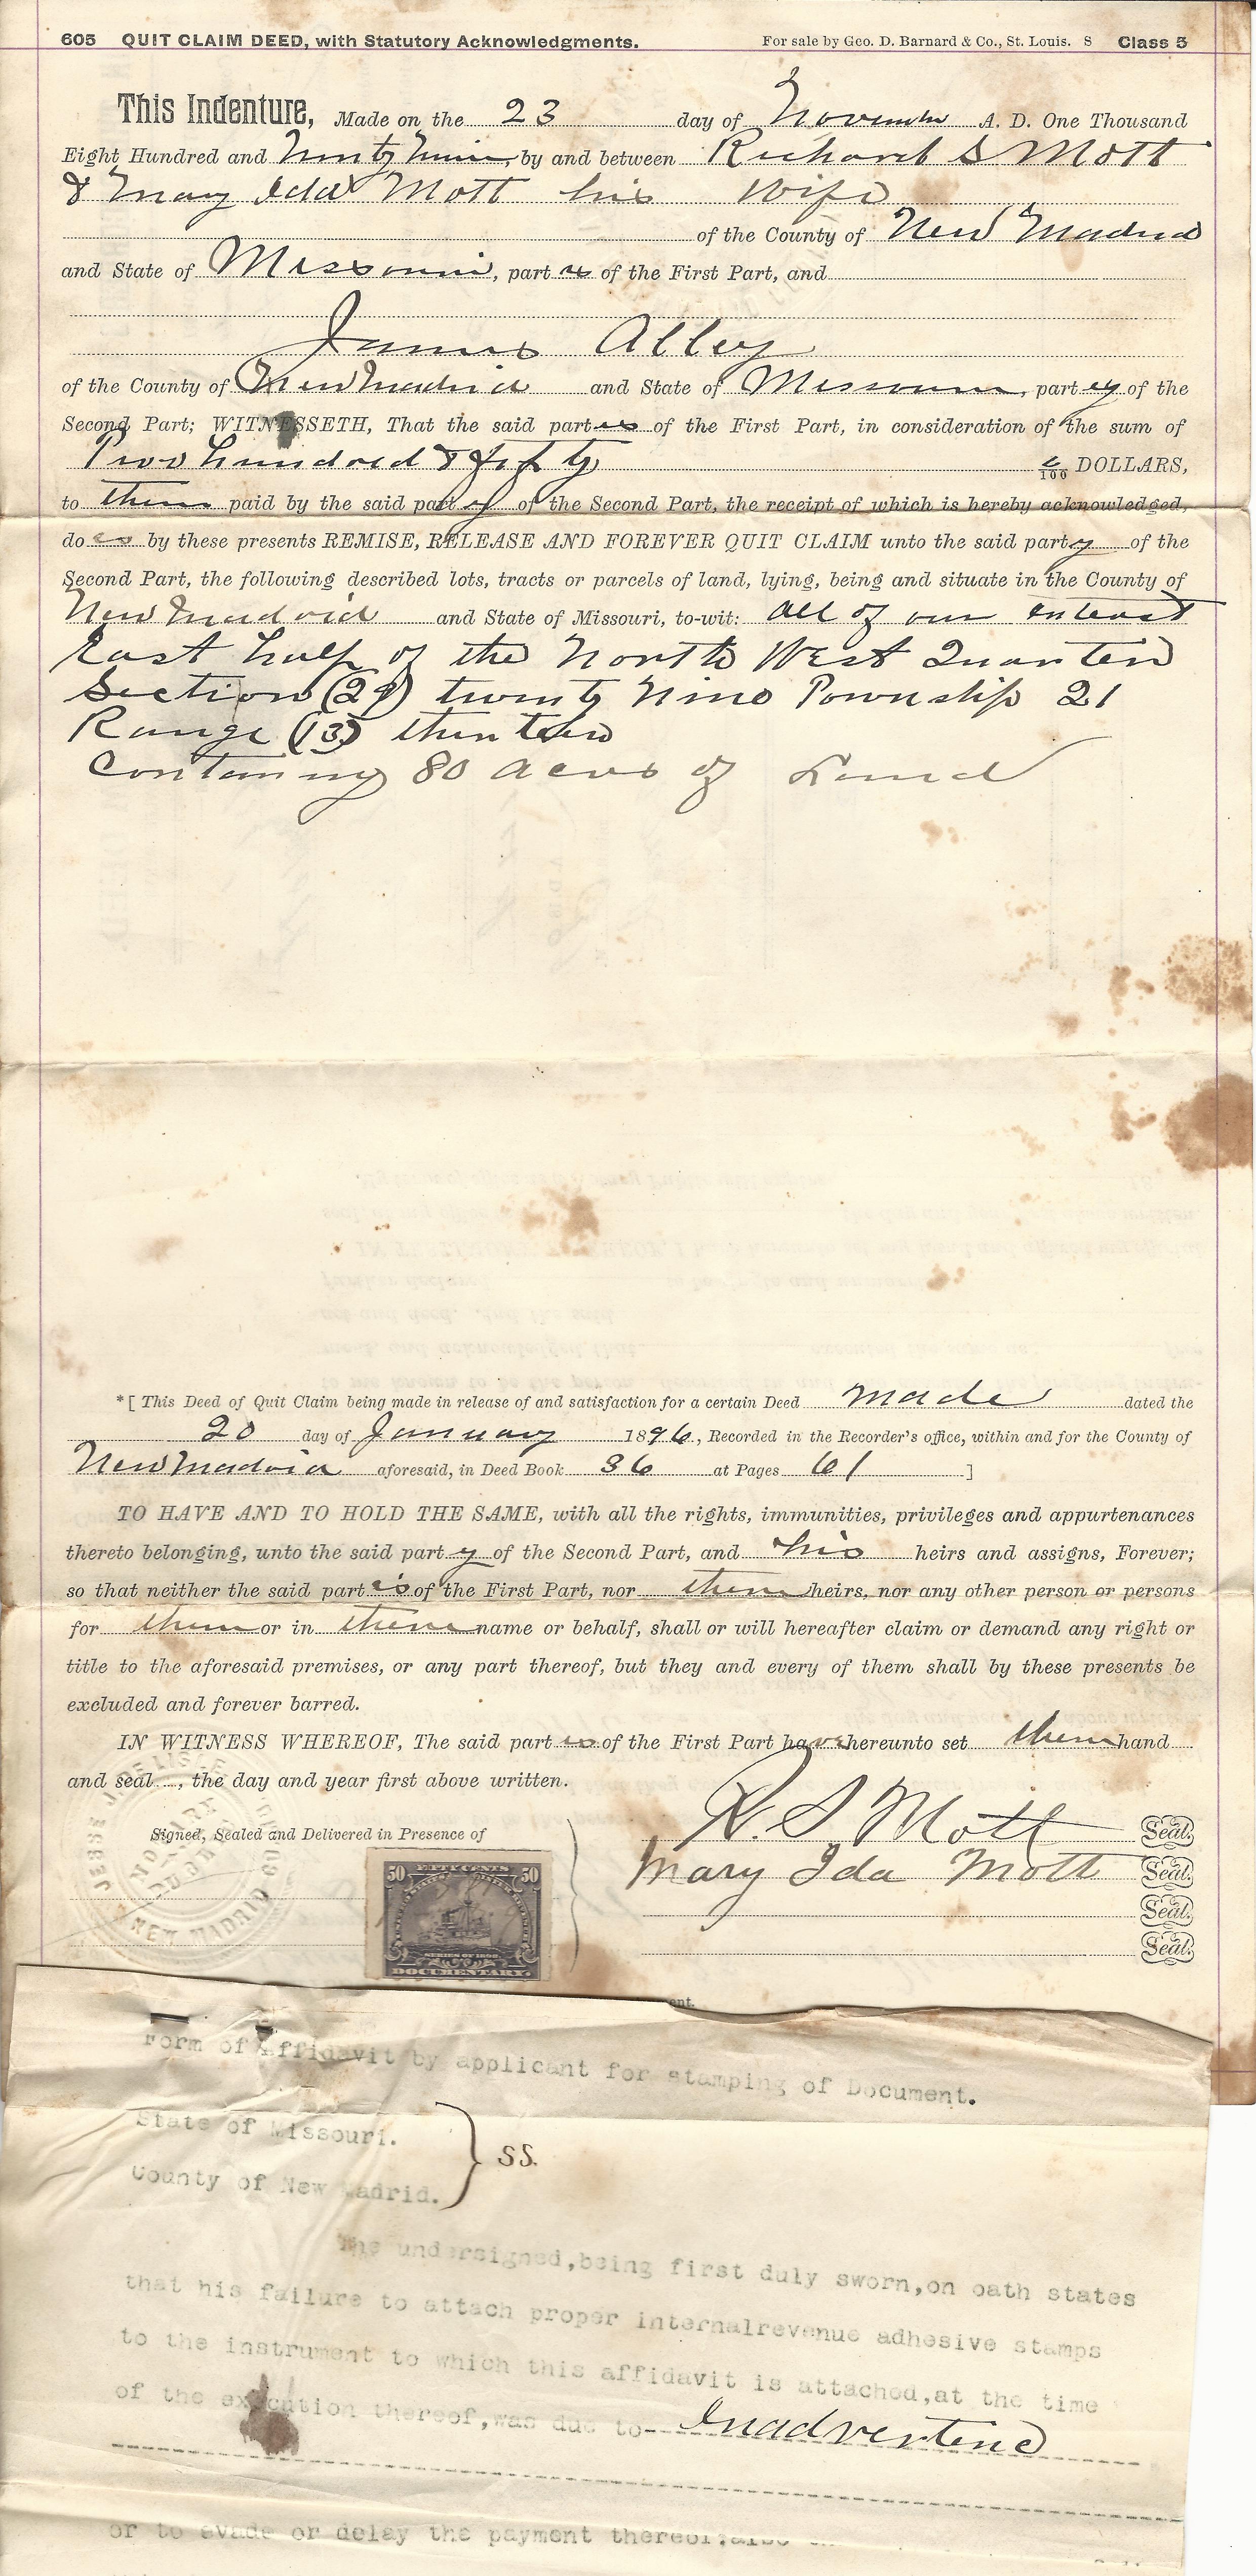 605 QUIT CLAIM DEED, with Statutory Acknowledgments. For sale by Geo. D. Barnard & Co., St. Louis. S Class 5
This Indenture, Made on the 23 day of November A. D. One Thousand
Eight Hundred and Ninty Nine, by and between Richard S Mott
& May Ida Mott his Wife
of the County of New Madrid
and State of Missouri, part es of the First Part, and
James Alley
of the County of New Madrid and State of Missouri, part ey of the
Second Part; WITNESSETH, That the said part es of the First Part, in consideration of the sum of
Two hundred & fifty /100 DOLLARS,
to them paid by the said part y of the Second Part, the receipt of which is hereby acknowledged,
do es by these presents REMISE, RELEASE AND FOREVER QUIT CLAIM unto the said party of the
Second Part, the following described lots, tracts or parcels of land, lying, being and situate in the County of
New Madrid and State of Missouri, to-wit: All of our interest
East half of the North West Quarter
Section (29) twenty Nine Township 21
Range (13) thirteen
Containing 80 acres of Land
*[ This Deed of Quit Claim being made in release of and satisfaction for a certain Deed made dated the
20 day of January 1896, Recorded in the Recorder's office, within and for the County of
New Madrid aforesaid, in Deed Book 36 at Pages 61 ]
TO HAVE AND TO HOLD THE SAME, with all the rights, immunities, privileges and appurtenances
thereto belonging, unto the said part y of the Second Part, and his heirs and assigns, Forever;
so that neither the said part is of the First Part, nor them heirs, nor any other person or persons
for them or in them name or behalf, shall or will hereafter claim or demand any right or
title to the aforesaid premises, or any part thereof, but they and every of them shall by these presents be
excluded and forever barred.
IN WITNESS WHEREOF, The said part es of the First Part have hereunto set them hand
and seal , the day and year first above written.
Signed, Sealed and Delivered in Presence of
R. S Mott Seal.
Mary Ida Mott Seal.
Seal.
Seal.
JESSE J.
NOTARY
NEW MADRID CO
50 FIFTY CENTS 50
SERIES OF 1898
DOCUMENTARY.
Form of Affidavit by applicant for stamping of Document.
State of Missouri.
SS.
County of New Madrid.
The undersigned,being first duly sworn,on oath states
that his failure to attach proper internalrevenue adhesive stamps
to the instrument to which this affidavit is attached,at the time
of the execution thereof,was due to-- Inadvertence
or to evade or delay the payment thereof;also